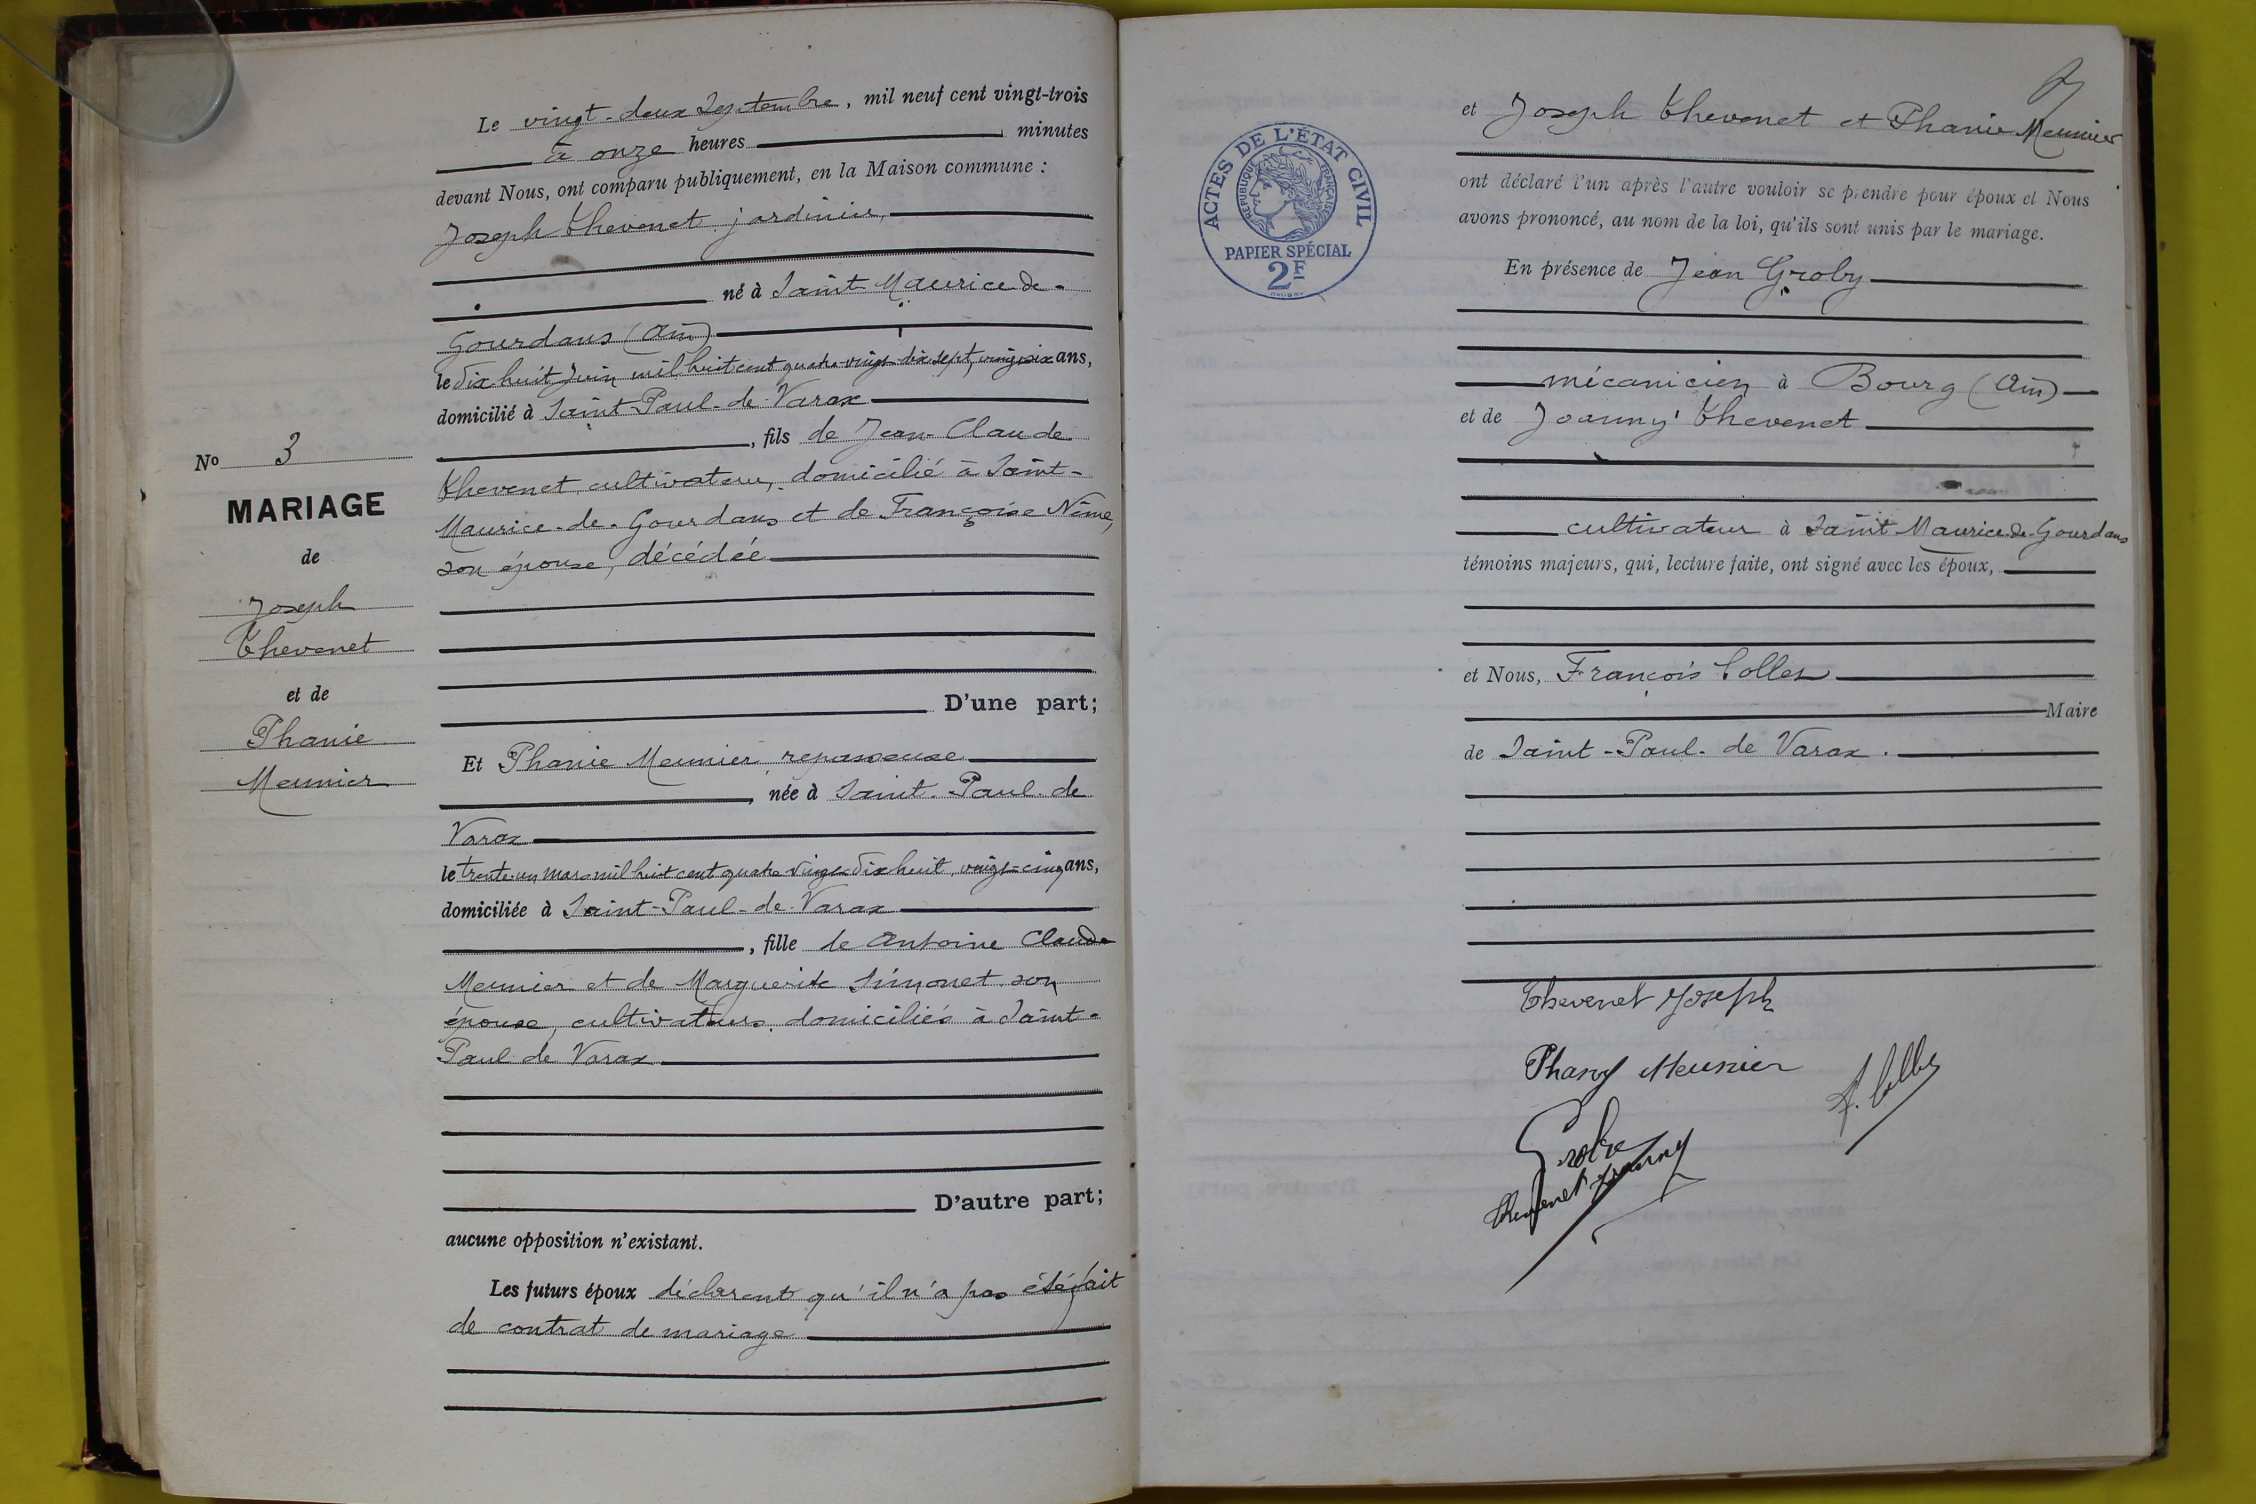 Le vingt-deux Septembre, mil neuf cent vingt-trois
à onze heures minutes
devant Nous, ont comparu publiquement, en la Maison commune :
Joseph Thevenet, jardinier,
né à Saint Maurice-de-
Gourdans (Ain)
le dix huit Juin mil huit cent quatre-vingt-dix sept, vingt-six ans,
domicilié à Saint-Paul-de-Varax
, fils de Jean-Claude
Thevenet, cultivateur, domicilié à Saint-
Maurice-de-Gourdans et de Françoise
son épouse, décédée
D'une part;
Et Phanie Meunier, repasseuse
, née à Saint-Paul-de
Varax
le trente un mars mil huit cent quatre vingt-dix huit, vingt-cinq ans,
domiciliée à Saint-Paul-de-Varax
, fille de Antoine Claude
Meunier et de Marguerite Simonet son
épouse, cultivateurs, domiciliés à Saint-
Paul de Varax
D'autre part;
aucune opposition n'existant.
Les futurs époux déclarent qu'il n'a pas été fait
de contrat de mariage
No 3
MARIAGE
de
Joseph
Thevenet
et de
Phanie
Meunier
et Joseph Thevenet et Phanie Meunier
ont déclaré l'un après l'autre vouloir se prendre pour époux et Nous
avons prononcé, au nom de la loi, qu'ils sont unis par le mariage.
En présence de Jean Groby
mécanicien à Bourg (Ain)
et de Joanny Thevenet
cultivateur à Saint Maurice-de-Gourdans
témoins majeurs, qui, lecture faite, ont signé avec les époux,
et Nous, François
Maire
de Saint-Paul-de Varax.
Thevenet Joseph
Phany Meunier
Thevenet Joanny
ACTES DE L'ÉTAT CIVIL
RÉPUBLIQUE FRANÇAISE
PAPIER SPÉCIAL
2F